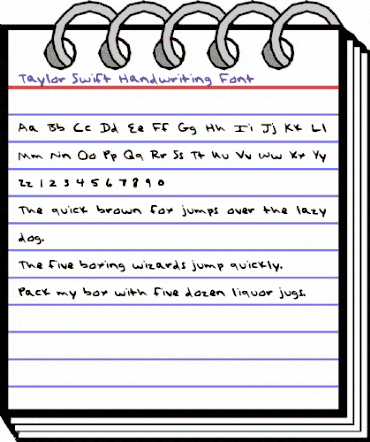 Taylor Swift Handwriting Font
Aa Bb Cc Dd Ee Ff Gg Hh Ii Jj Kk Ll
Mm Nn Oo Pp Qq Rr Ss Tt Uu Vv Ww Xx Yy
Zz 1 2 3 4 5 6 7 8 9 0
The quick brown fox jumps over the lazy
dog.
The five boxing wizards jump quickly.
Pack my box with five dozen liquor jugs.